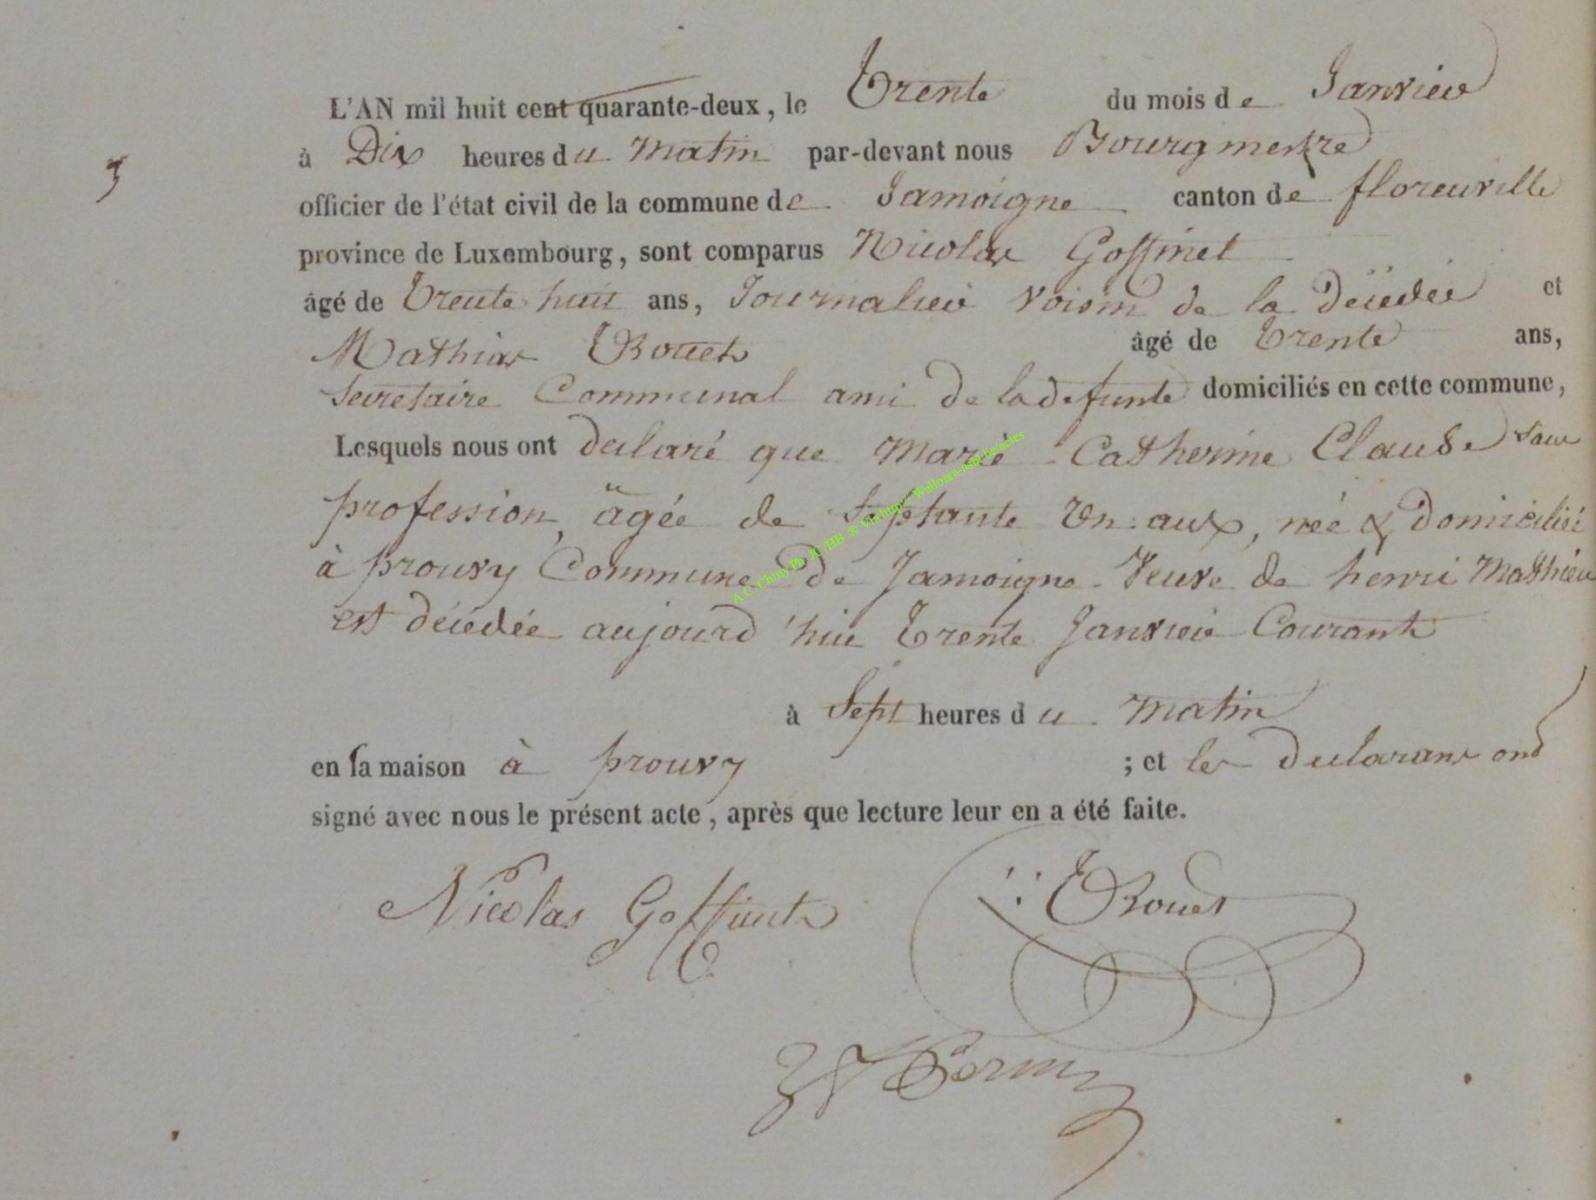 L'AN mil huit cent quarante-deux, le Trente du mois de Janvier
3
à Dix heures du matin par-devant nous Bourgmestre
officier de l'état civil de la commune de Jamoigne canton de florenville
province de Luxembourg, sont comparus Nicolas Goffinet
âgé de Trente huit ans, Journalier voisin de la décédée et
Mathias Rouet âgé de Trente ans,
Secretaire Communal ami de la defunte domiciliés en cette commune,
Lesquels nous ont declaré que Marie Catherine Claude sans
profession, âgée de septante un ans, née & domiciliée
à prouvy Commune de Jamoigne Veuve de henri Mathieu
est décédée aujourd'hui Trente Janvier Courant
à Sept heures du matin
en sa maison à prouvy ; et les declarans ont
signé avec nous le présent acte, après que lecture leur en a été faite.
Nicolas Goffinet Rouet